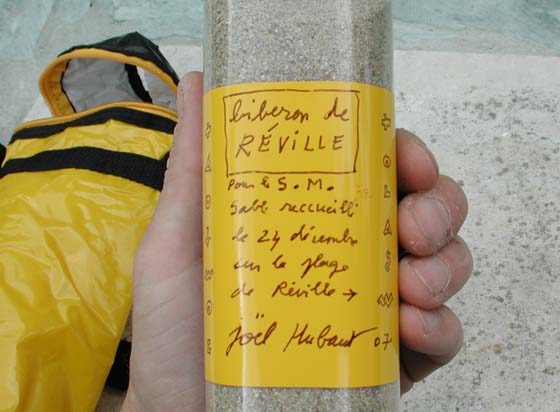 biberon de
RÉVILLE
Pour le S. M.
Sable reccueilli
le 24 décembre
sur la plage
de Réville →
joël Hubaut 07